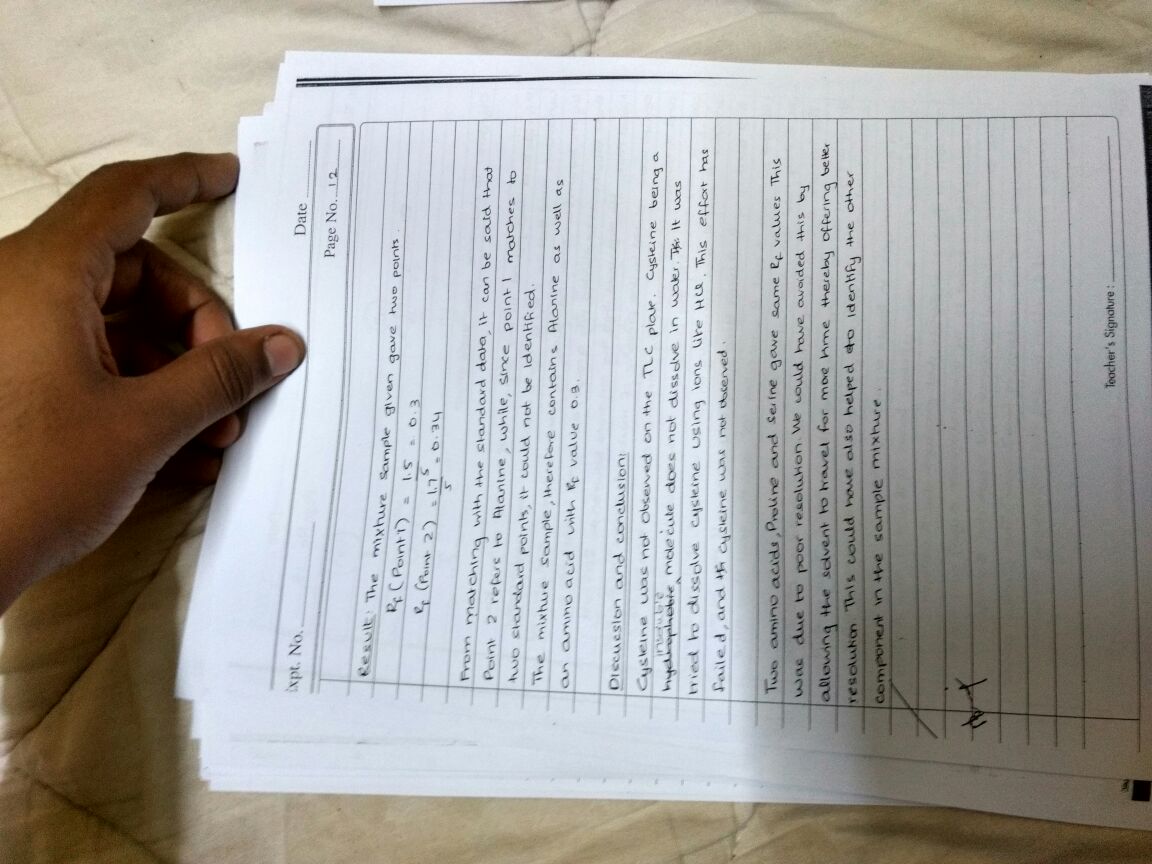 Expt. No.
Date
Page No. 12
Result: The mixture sample given gave two points.
Rf (Point 1) = 1.5 = 0.3
Rf (Point 2) = 1.75 = 0.34
5
From matching with the standard data, it can be said that
Point 2 refers to Alanine, while, since point 1 matches to
two standard points, it could not be identified.
The mixture sample, therefore contains Alanine as well as
an amino acid with Rf value 0.3.
Discussion and conclusion:
Cysteine was not observed on the TLC plate. Cysteine being a
insoluble
hydrophobic molecule does not dissolve in water. It was
tried to dissolve cysteine using ions like HCl. This effort has
failed, and cysteine was not observed.
Two amino acids, Proline and serine gave same Rf values This
was due to poor resolution. We could have avoided this by
allowing the solvent to travel for more time thereby offering better
resolution This could have also helped to identify the other
component in the sample mixture.
Teacher's Signature :